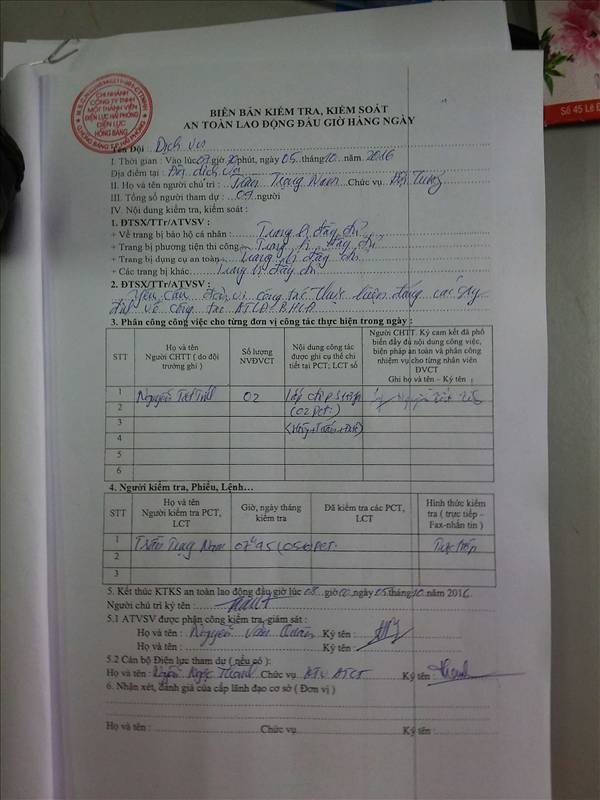 CHI NHÁNH
CÔNG TY TNHH
MỘT THÀNH VIÊN
ĐIỆN LỰC HẢI PHÒNG
ĐIỆN LỰC
HỒNG BÀNG
Số 45 Lê
BIÊN BẢN KIỂM TRA, KIỂM SOÁT
AN TOÀN LAO ĐỘNG ĐẦU GIỜ HÀNG NGÀY
Tên Đội: Dịch vụ
I. Thời gian : Vào lúc 07 giờ 30 phút, ngày 05 tháng 10 năm 2016
Địa điểm tại : Đội dịch vụ
II. Họ và tên người chủ trì : Trần Trọng Nam Chức vụ Đội Trưởng
III. Tổng số người tham dự : 09 người
IV. Nội dung kiểm tra, kiểm soát :
1. ĐTSX/TTr/ATVSV :
+ Về trang bị bảo hộ cá nhân : Trang bị đầy đủ
+ Trang bị phương tiện thi công : Trang bị đầy đủ
+ Trang bị dụng cụ an toàn : Trang bị đầy đủ
+ Các trang bị khác Trang bị đầy đủ
2. ĐTSX/TTr/ATVSV :
Yêu cầu đơn vị công tác thực hiện đúng
về công tác ATLĐ
3. Phân công công việc cho từng đơn vị công tác thực hiện trong ngày :
STT
Họ và tên
Người CHTT ( do đội
trưởng ghi )
Số lượng
NVĐVCT
Nội dung công tác
được ghi cụ thể chi
tiết tại PCT; LCT số
Người CHTT. Ký cam kết đã phổ
biến đầy đủ nội dung công việc,
biện pháp an toàn và phân công
nhiệm vụ cho từng nhân viên
ĐVCT
Ghi họ và tên – Ký tên
1 Nguyễn 02
2 (02 PCT)
3
4
5
6
4. Người kiểm tra, Phiếu, Lệnh…
STT
Họ và tên
Người kiểm tra PCT,
LCT
Giờ, ngày tháng
kiểm tra
Đã kiểm tra các PCT,
LCT
Hình thức kiểm
tra ( trực tiếp –
Fax-nhắn tin )
1 Trần Trọng Nam 07h45 PCT Trực tiếp
2
3
5. Kết thúc KTKS an toàn lao động đầu giờ lúc 08 giờ 00 ngày 05 tháng 10 năm 2016
Người chủ trì ký tên
5.1 ATVSV được phân công kiểm tra, giám sát :
Họ và tên : Nguyễn Văn Ký tên :
Họ và tên : Ký tên :
5.2 Cán bộ Điện lực tham dự ( nếu có ):
Họ và tên : Nguyễn Ngọc Chức vụ KTV ATCT Ký tên :
6. Nhận xét, đánh giá của cấp lãnh đạo cơ sở ( Đơn vị )
Họ và tên : Chức vụ Ký tên :